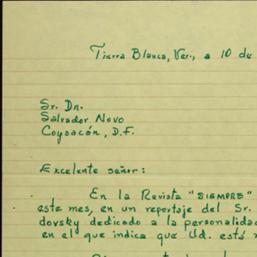 Tierra Blanca, Ver., a 10 de
Sr. Dn.
Salvador Novo
Coyoacán, D.F.
Excelente señor:
En la Revista "SIEMPRE"
este mes, en un reportaje del Sr.
dovsky dedicado a la personalidad
en el que indica que Ud. está